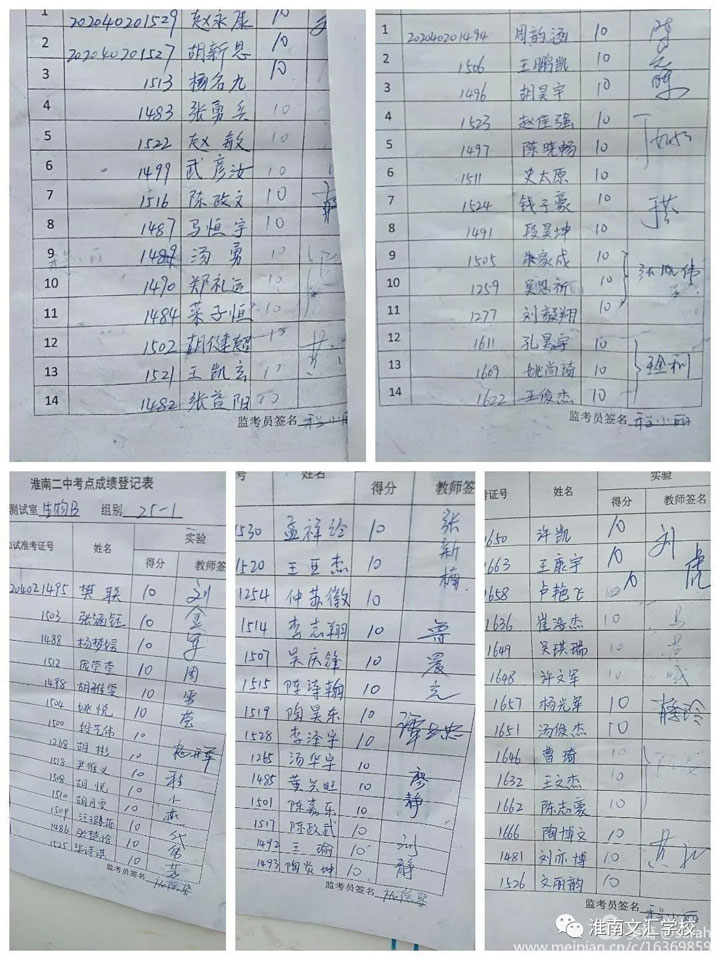 1 202040201529 赵永康 10
2 202040201527 胡新思 10
3 1513 杨名九 10
4 1483 张勇兵 10
5 1522 赵敏 10
6 1499 武彦汝 10
7 1516 陈政文 10
8 1487 马恒宇 10
9 1489 汤勇 10
10 1490 郑礼运 10
11 1484 荣子恒 10
12 1502 胡健超 10
13 1521 王凯玄
14 1482 张益阳
监考员签名
1 202040201494 周韵涵 10
2 1506 王鹏凯 10
3 1496 胡昊宇 10
4 1523 赵佳强 10
5 1497 陈晓畅 10
6 1511 史太原 10
7 1524 钱子豪 10
8 1491 段昊坤 10
9 1505 朱家成 10
10 1259 吴思祈 10
11 1277 刘毅翔 10
12 1611 孔昊宇 10
13 1609 姚尚琦 10
14 1622 王俊杰 10
监考员签名
淮南二中考点成绩登记表
测试室 生物B 组别 25-1
试准考证号 姓名 实验
得分 教师签
204021495 樊联 10 刘
1503 张涵钰 10 金
1488 杨梦媛 10 军
1512 庞莹莹 10 周
1498 胡雅雯 10 雷
1504 姚悦 10
1500 10
1268 胡彬 10
1518 尹维义 10
1508 胡悦 10
1510 胡月雯 10
1509 10
1486 张楚晗 10 伟
1525 10
监考员签名
号 姓名 得分 教师签
1530 孟祥绘 10 张
1520 王亚杰 10 新
1254 仲苏徽 10 楠
1514 李志翔 10 鲁
1507 吴庆锋 10 晨
1515 陈诗翰 10 克
1519 陶昊东 10
1528 李泽宇 10
1265 汤华宇 10 廖
1485 黄光旺 10 静
1501 陈嘉东 10
1517 陈政武 10
1492 王瑜 10 刘
1493 陶炎坤 10 静
监考员签名
考证号 姓名 实验
得分 教师签名
1650 许凯 10 刘
1663 王康宇 10 虎
1658 卢艳飞 10
1636 崔浩杰 10
1649 吴琪瑞 10
1648 许文军 10
1657 杨光军 10
1651 汤俊杰 10
1646 曹琦 10
1632 王文杰 10
1662 陈志豪 10
1666 陶博文 10
1481 刘亦博 10
1526 文丽韵 10
监考员签名
淮南文汇学校
www.meipian.cn/c/16369859